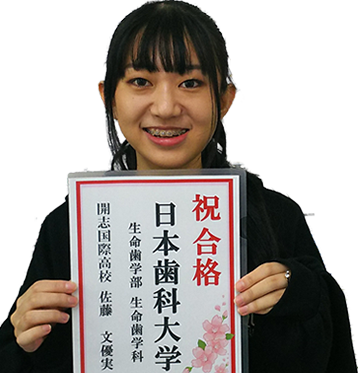 祝合格
日本歯科大学
生命歯学部 生命歯学科
開志国際高校 佐藤 文優実